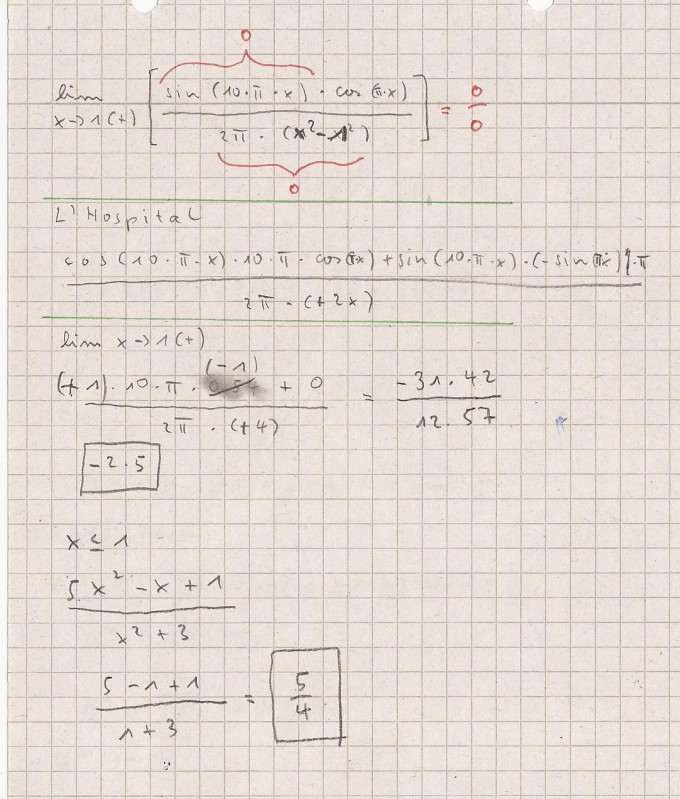 0
lim x→1(+) [ sin (10·π·x) · cos (π·x) / 2π · (x²-x²) ] = 0/0
0
L'Hospital
cos (10·π·x) · 10·π · cos(πx) + sin (10·π·x) · (-sin(πx))·π
2π · (+2x)
lim x→1(+)
(-1)
(+1) · 10·π · + 0 = -31.42
2π · (+4) 12.57
-2.5
x ≤ 1
5x² - x + 1
x² + 3
5 - 1 + 1 = 5
1 + 3 4